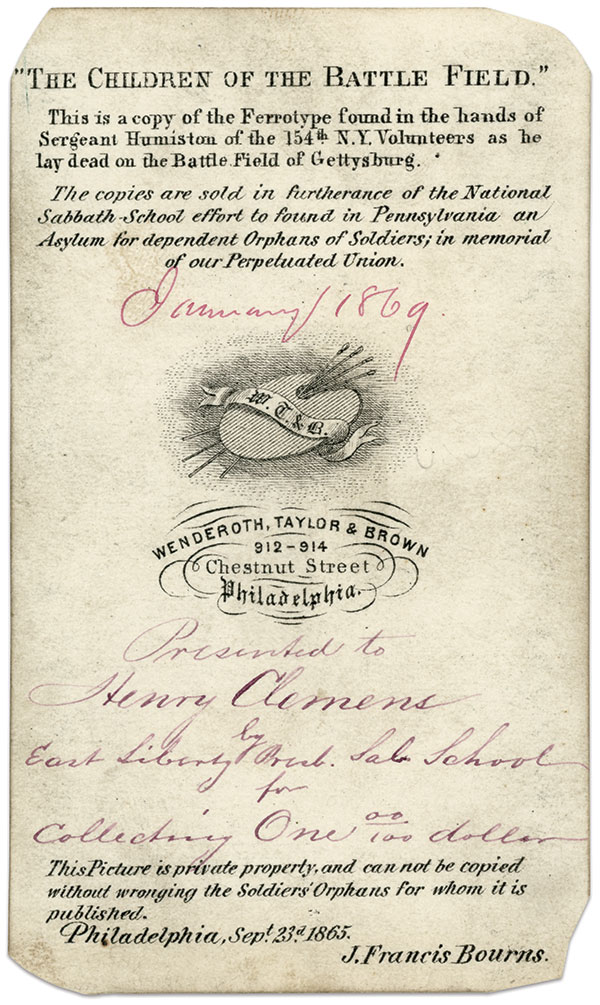 "THE CHILDREN OF THE BATTLE FIELD."
This is a copy of the Ferrotype found in the hands of
Sergeant Humiston of the 154th N.Y. Volunteers as he
lay dead on the Battle Field of Gettysburg.
The copies are sold in furtherance of the National
Sabbath-School effort to found in Pennsylvania an
Asylum for dependent Orphans of Soldiers; in memorial
of our Perpetuated Union.
January / 1869
W. T. & B.
WENDEROTH, TAYLOR & BROWN
912-914
Chestnut Street
Philadelphia.
Presented to
Henry Clemens
by
East Liberty Presb. Sab School
for
Collecting One 00/100 dollar
This Picture is private property, and can not be copied
without wronging the Soldiers' Orphans for whom it is
published.
Philadelphia, Sept. 23d. 1865.
J. Francis Bourns.